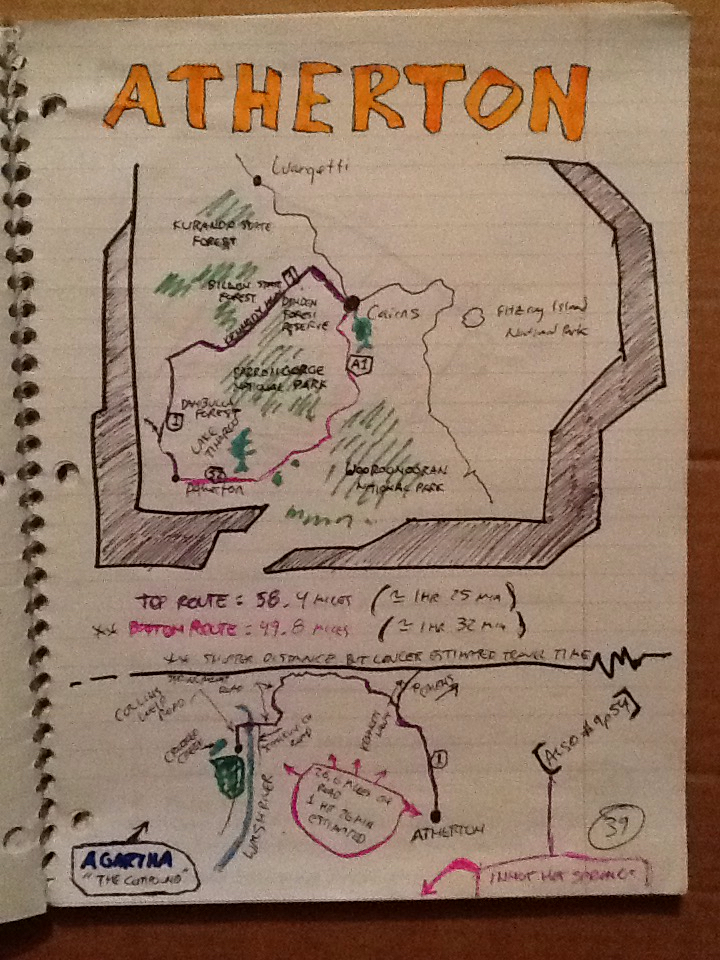 ATHERTON
Wangetti
KURANDA STATE
FOREST
1
DINDEN
FOREST
RESERVE
STATE
FOREST
KENNEDY HWY
Cairns
Fitzroy Island
National Park
A1
BARRON GORGE
NATIONAL PARK
FOREST
1
LAKE
WOOROONOORAN
NATIONAL PARK
TOP ROUTE: 58.4 MILES (≈ 1 HR 25 MIN)
** BOTTOM ROUTE: 49.8 MILES (≈ 1 HR 32 MIN)
** SHORTER DISTANCE BUT LONGER ESTIMATED TRAVEL TIME
ROAD
COLLINS
WEIR
ROAD
ROAD
KENNEDY
HWY
CAIRNS
1
(ALSO # 9 p54)
MILES ON
ROAD
1 HR
ESTIMATED
ATHERTON
39
AGARTHA
"THE COMPOUND"
INNOT HOT SPRINGS